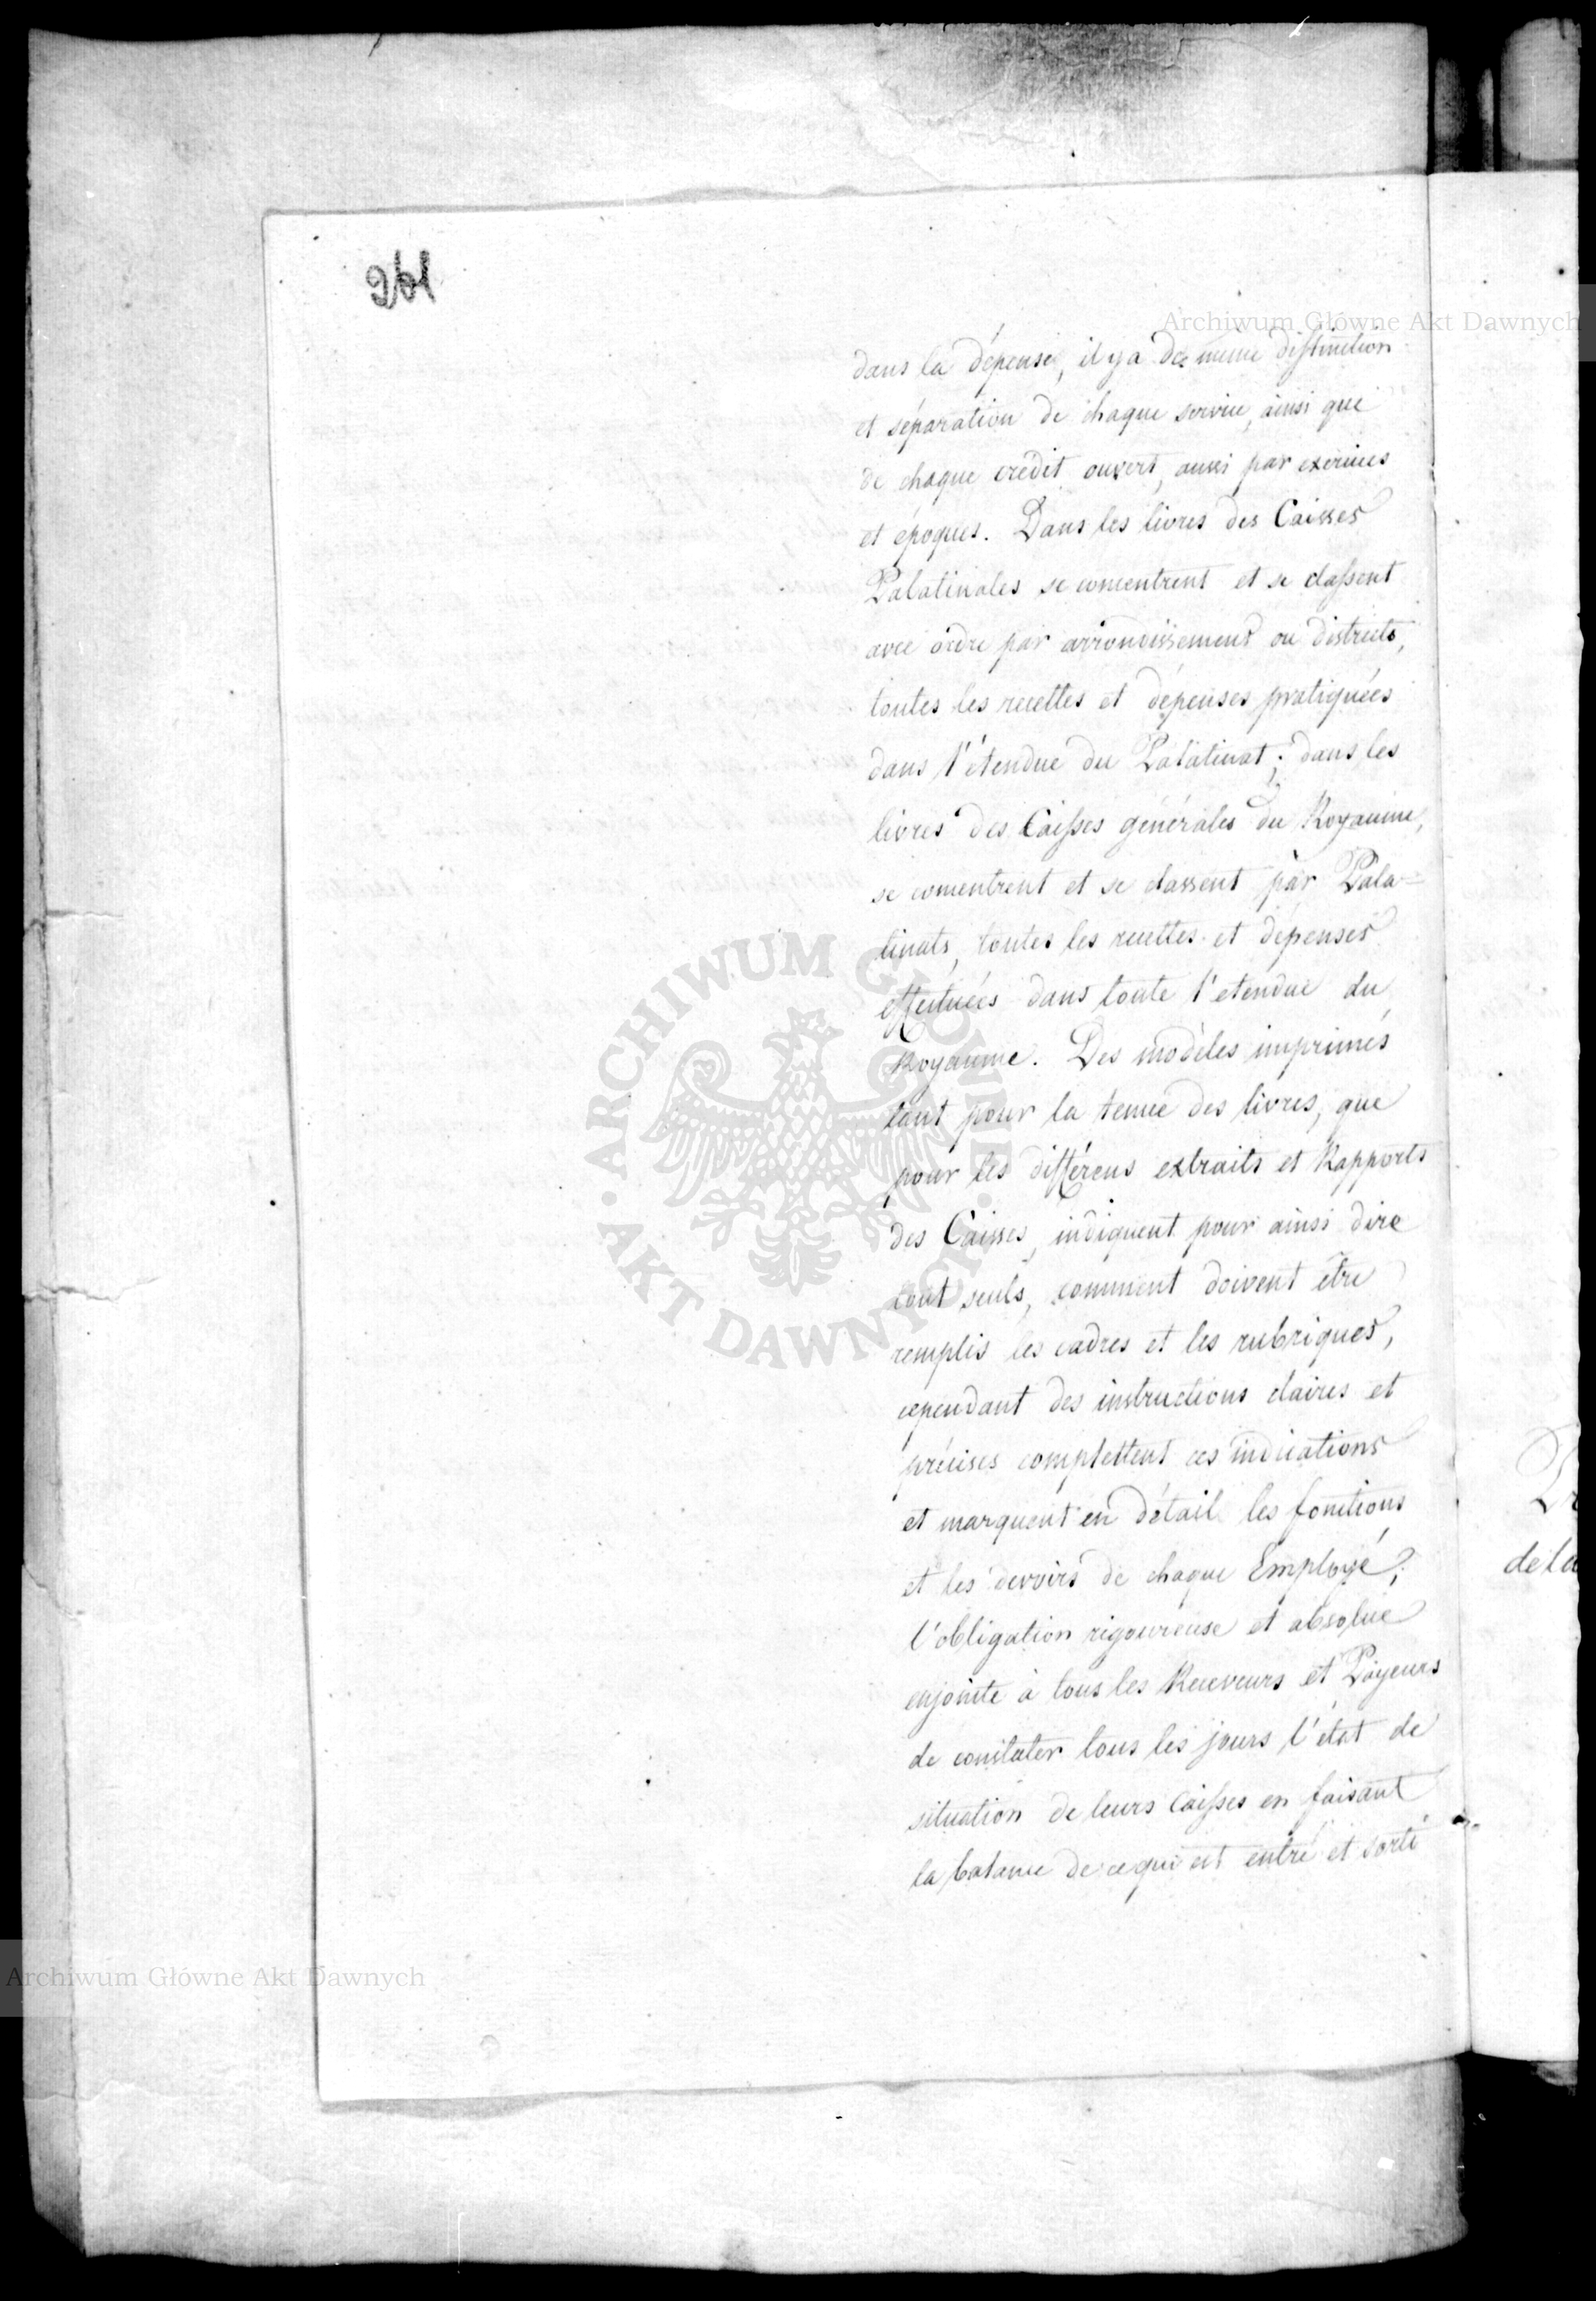 261
Archiwum Główne Akt Dawnych
dans la dépense, il y a de même distinction
et séparation de chaque service, ainsi que
de chaque crédit ouvert, aussi par exercices
et époques. Dans les livres des Caisses
Palatinales se concentrent et se classent
avec ordre par arrondissement ou districts,
toutes les recettes et dépenses pratiquées
dans l'étendue du Palatinat; dans les
livres des Caisses générales du Royaume,
se concentrent et se classent par Pala=
tinats, toutes les recettes et dépenses
effectuées dans toute l'etendue du
Royaume. Des modèles imprimés
tant pour la tenue des livres, que
pour les différens extraits et Rapports
des Caisses, indiquent pour ainsi dire
tout seuls, comment doivent être
remplis les cadres et les rubriques,
cependant des instructions claires et
précises complettent ces indications
et marquent en détail les fonctions
et les devoirs de chaque Employé;
l'obligation rigoureuse et absolue
enjointe à tous les Receveurs et Payeurs
de constater tous les jours l'état de
situation de leurs Caisses en faisant
la balance de ce qui est entré et sorti
de la
ARCHIWUM GŁÓWNE · AKT DAWNYCH ·
Archiwum Główne Akt Dawnych